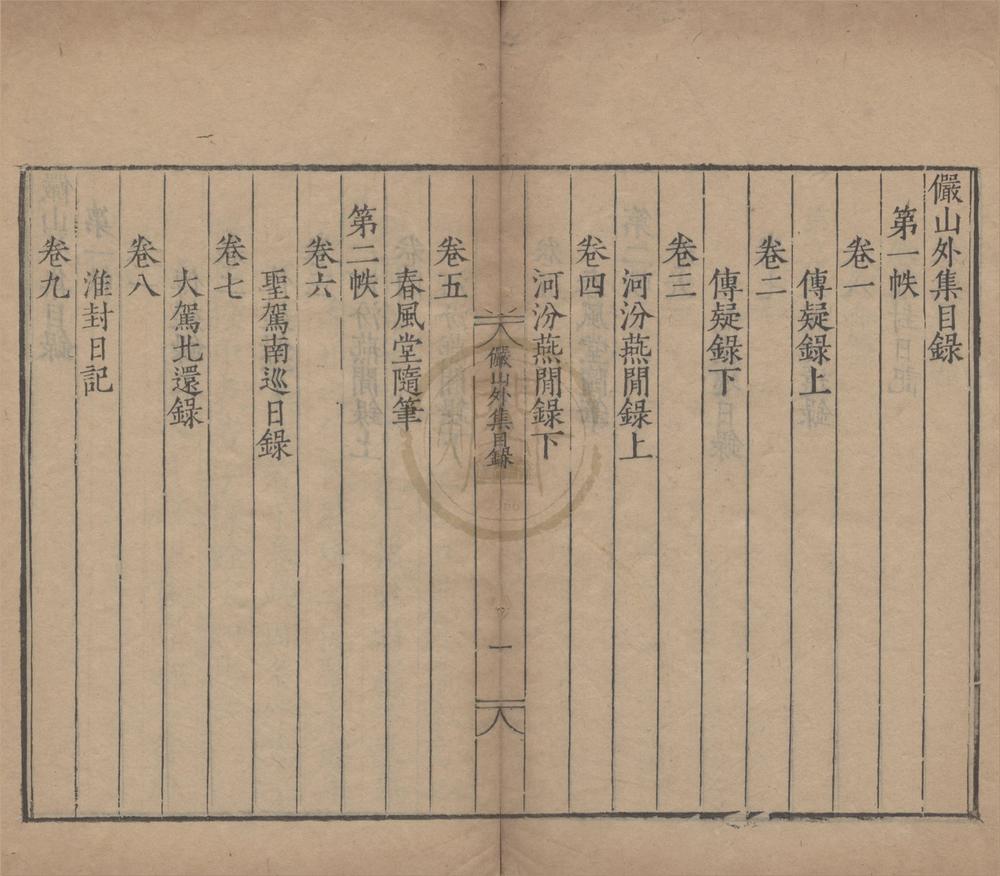 儼山外集目錄
第一帙
卷一
傳疑錄上
卷二
傳疑錄下
卷三
河汾燕閒錄上
卷四
河汾燕閒錄下
儼山外集目錄
一
卷五
春風堂隨筆
第二帙
卷六
聖駕南巡日錄
卷七
大駕北還錄
卷八
淮封日記
卷九